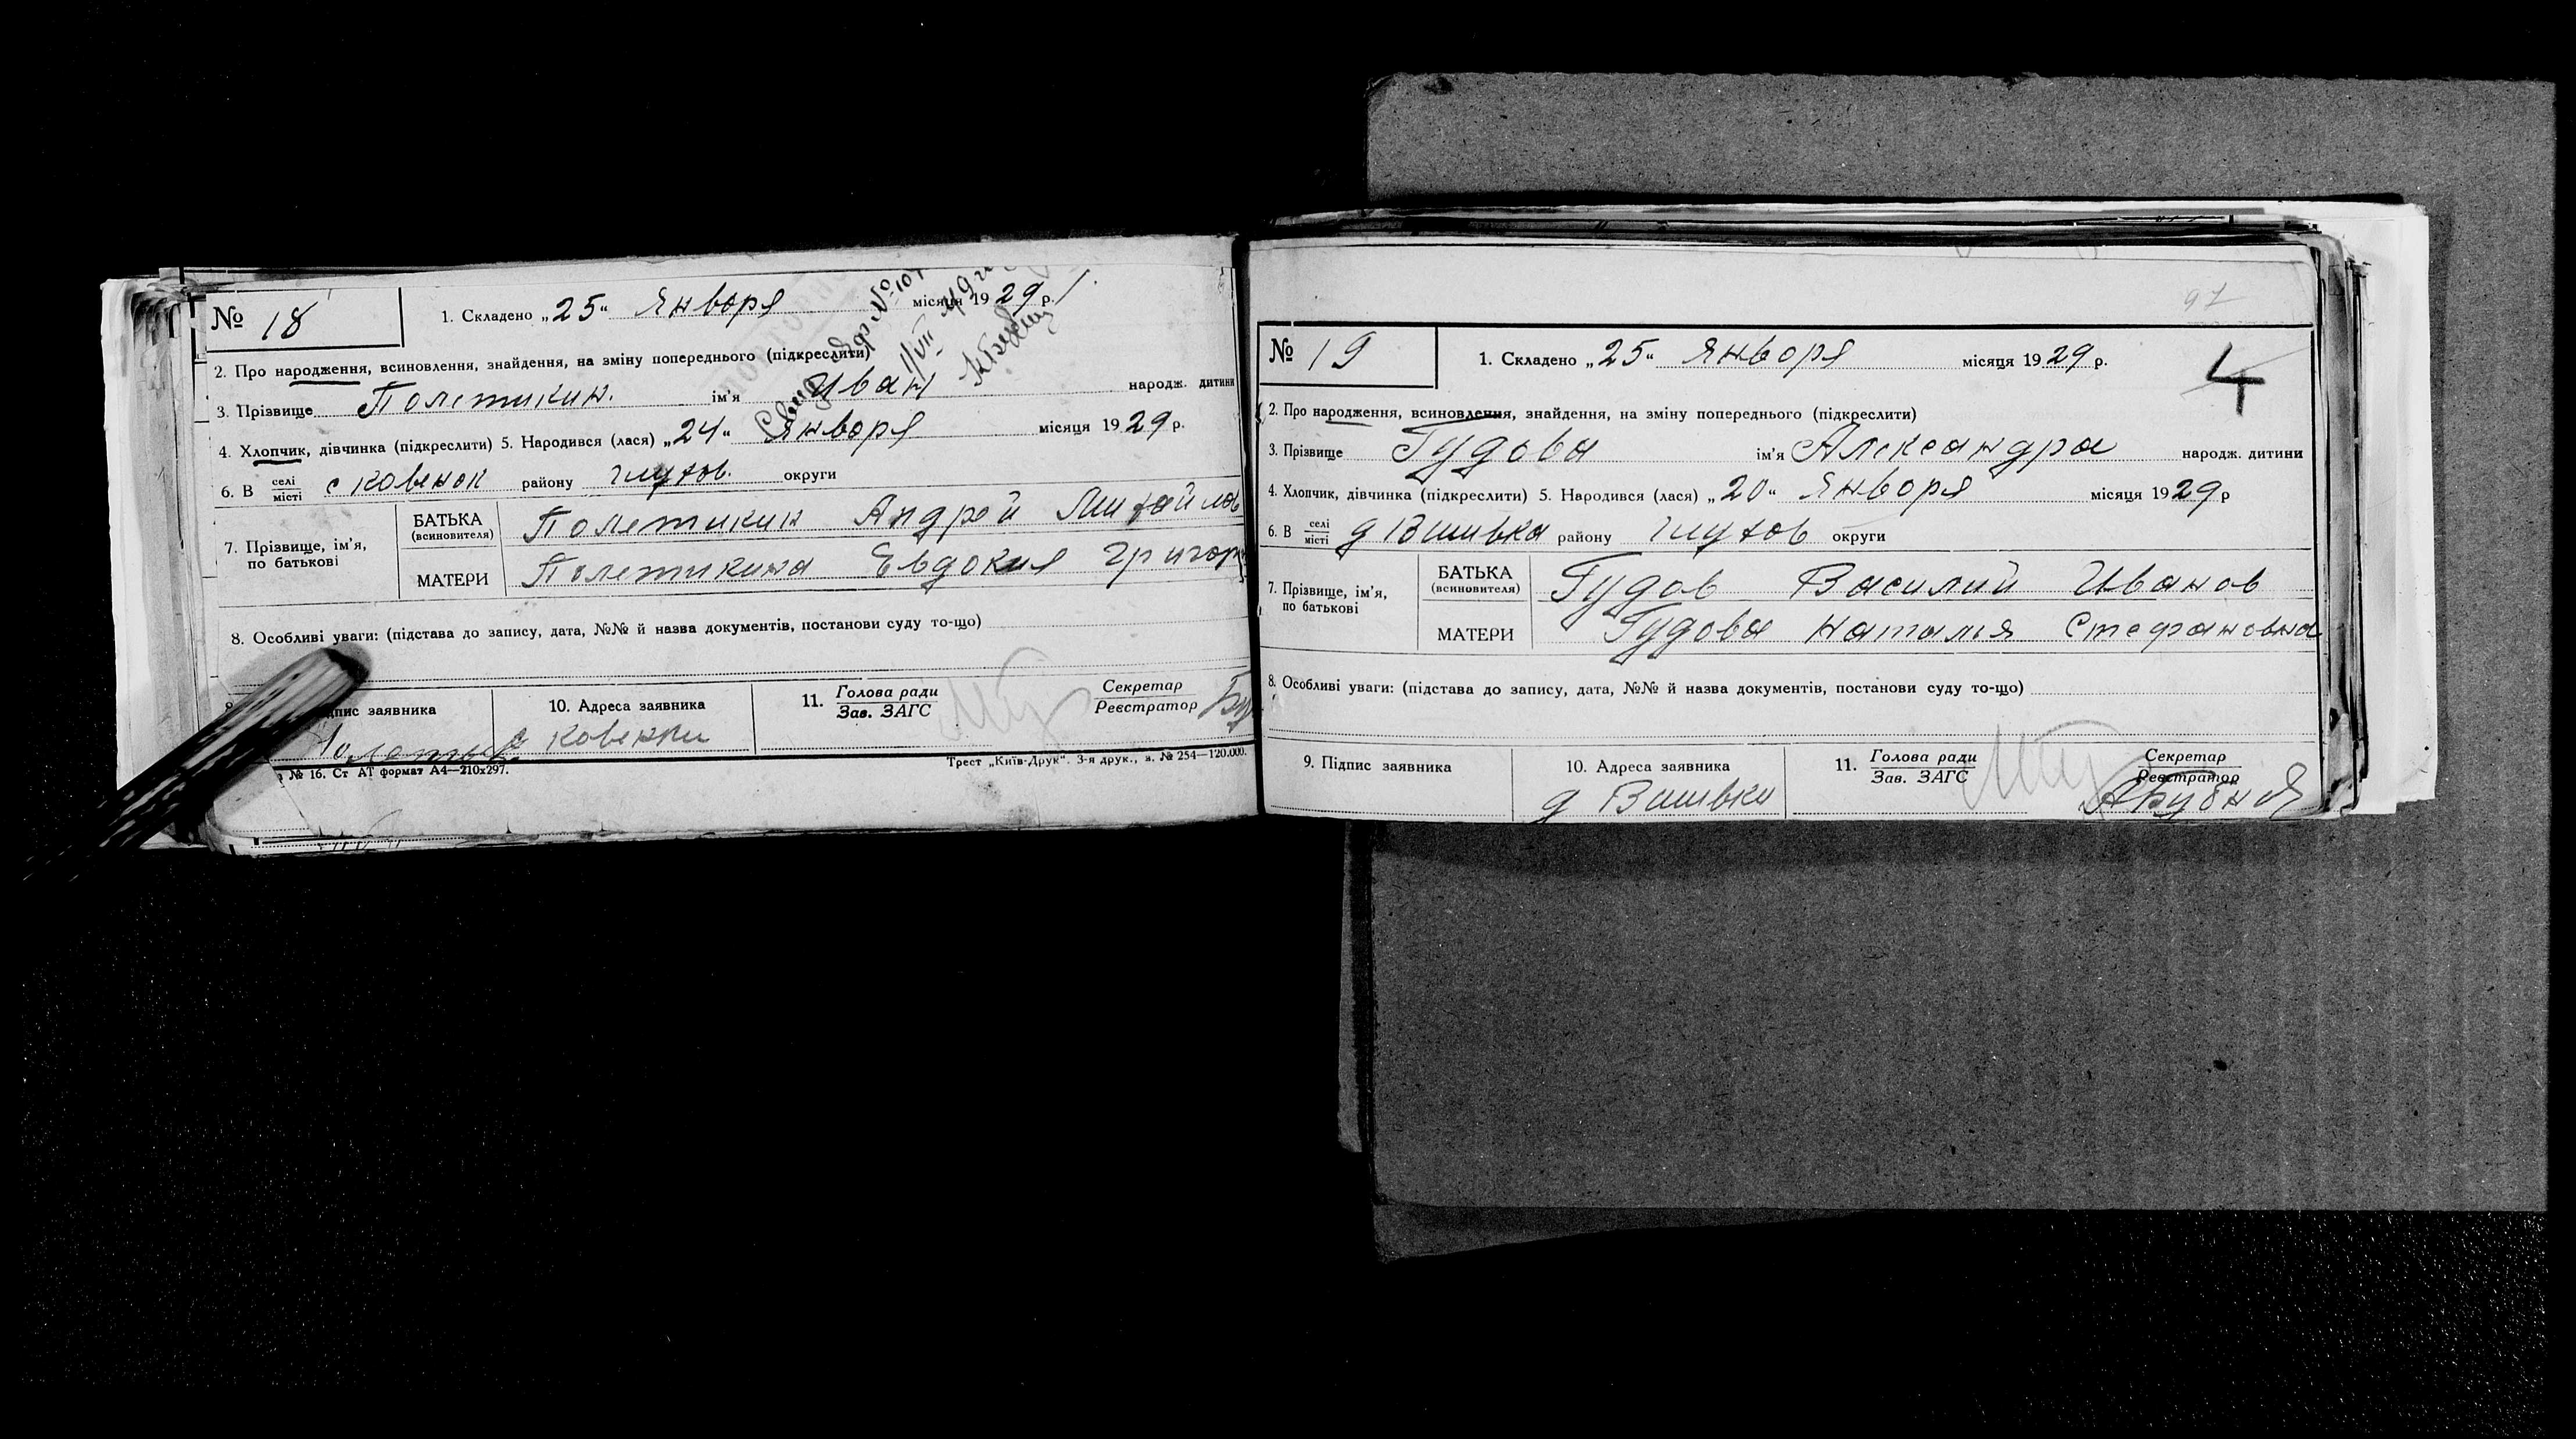 № 18
1. Складено „25“ Января місяця 1929 р.
2. Про народження, всиновлення, знайдення, на зміну попереднього (підкреслити)
3. Прізвище Полетикин. ім'я Иван народж. дитини
4. Хлопчик, дівчинка (підкреслити) 5. Народився (лася) „24“ Января місяця 1929 р.
6. В селі місті с Ковенок району Глухов. округи
7. Прізвище, ім'я, по батькові
БАТЬКА (всиновителя) Полетикин Андрей Михайлов
МАТЕРИ Полетикина Евдокия Григор
8. Особливі уваги: (підстава до запису, дата, №№ й назва документів, постанови суду то-що)
підпис заявника
10. Адреса заявника
с Ковенки
11. Голова ради Зав. ЗАГС
Секретар Реєстратор
№ 16. Ст АТ формат А4—210х297.
Трест „Київ-Друк“. 3-я друк., з. № 254—120.000.
97
№ 19
1. Складено „25“ Января місяця 1929 р.
4
2. Про народження, всиновлення, знайдення, на зміну попереднього (підкреслити)
3. Прізвище Гудова ім'я Александра народж. дитини
4. Хлопчик, дівчинка (підкреслити) 5. Народився (лася) „20“ Января місяця 1929 р
6. В селі місті д Вишвка району Глухов округи
7. Прізвище, ім'я, по батькові
БАТЬКА (всиновителя) Гудов Василий Иванов
МАТЕРИ Гудова Наталья Стефановна
8. Особливі уваги: (підстава до запису, дата, №№ й назва документів, постанови суду то-що)
9. Підпис заявника
10. Адреса заявника
д Вишвки
11. Голова ради Зав. ЗАГС
Секретар Реєстратор